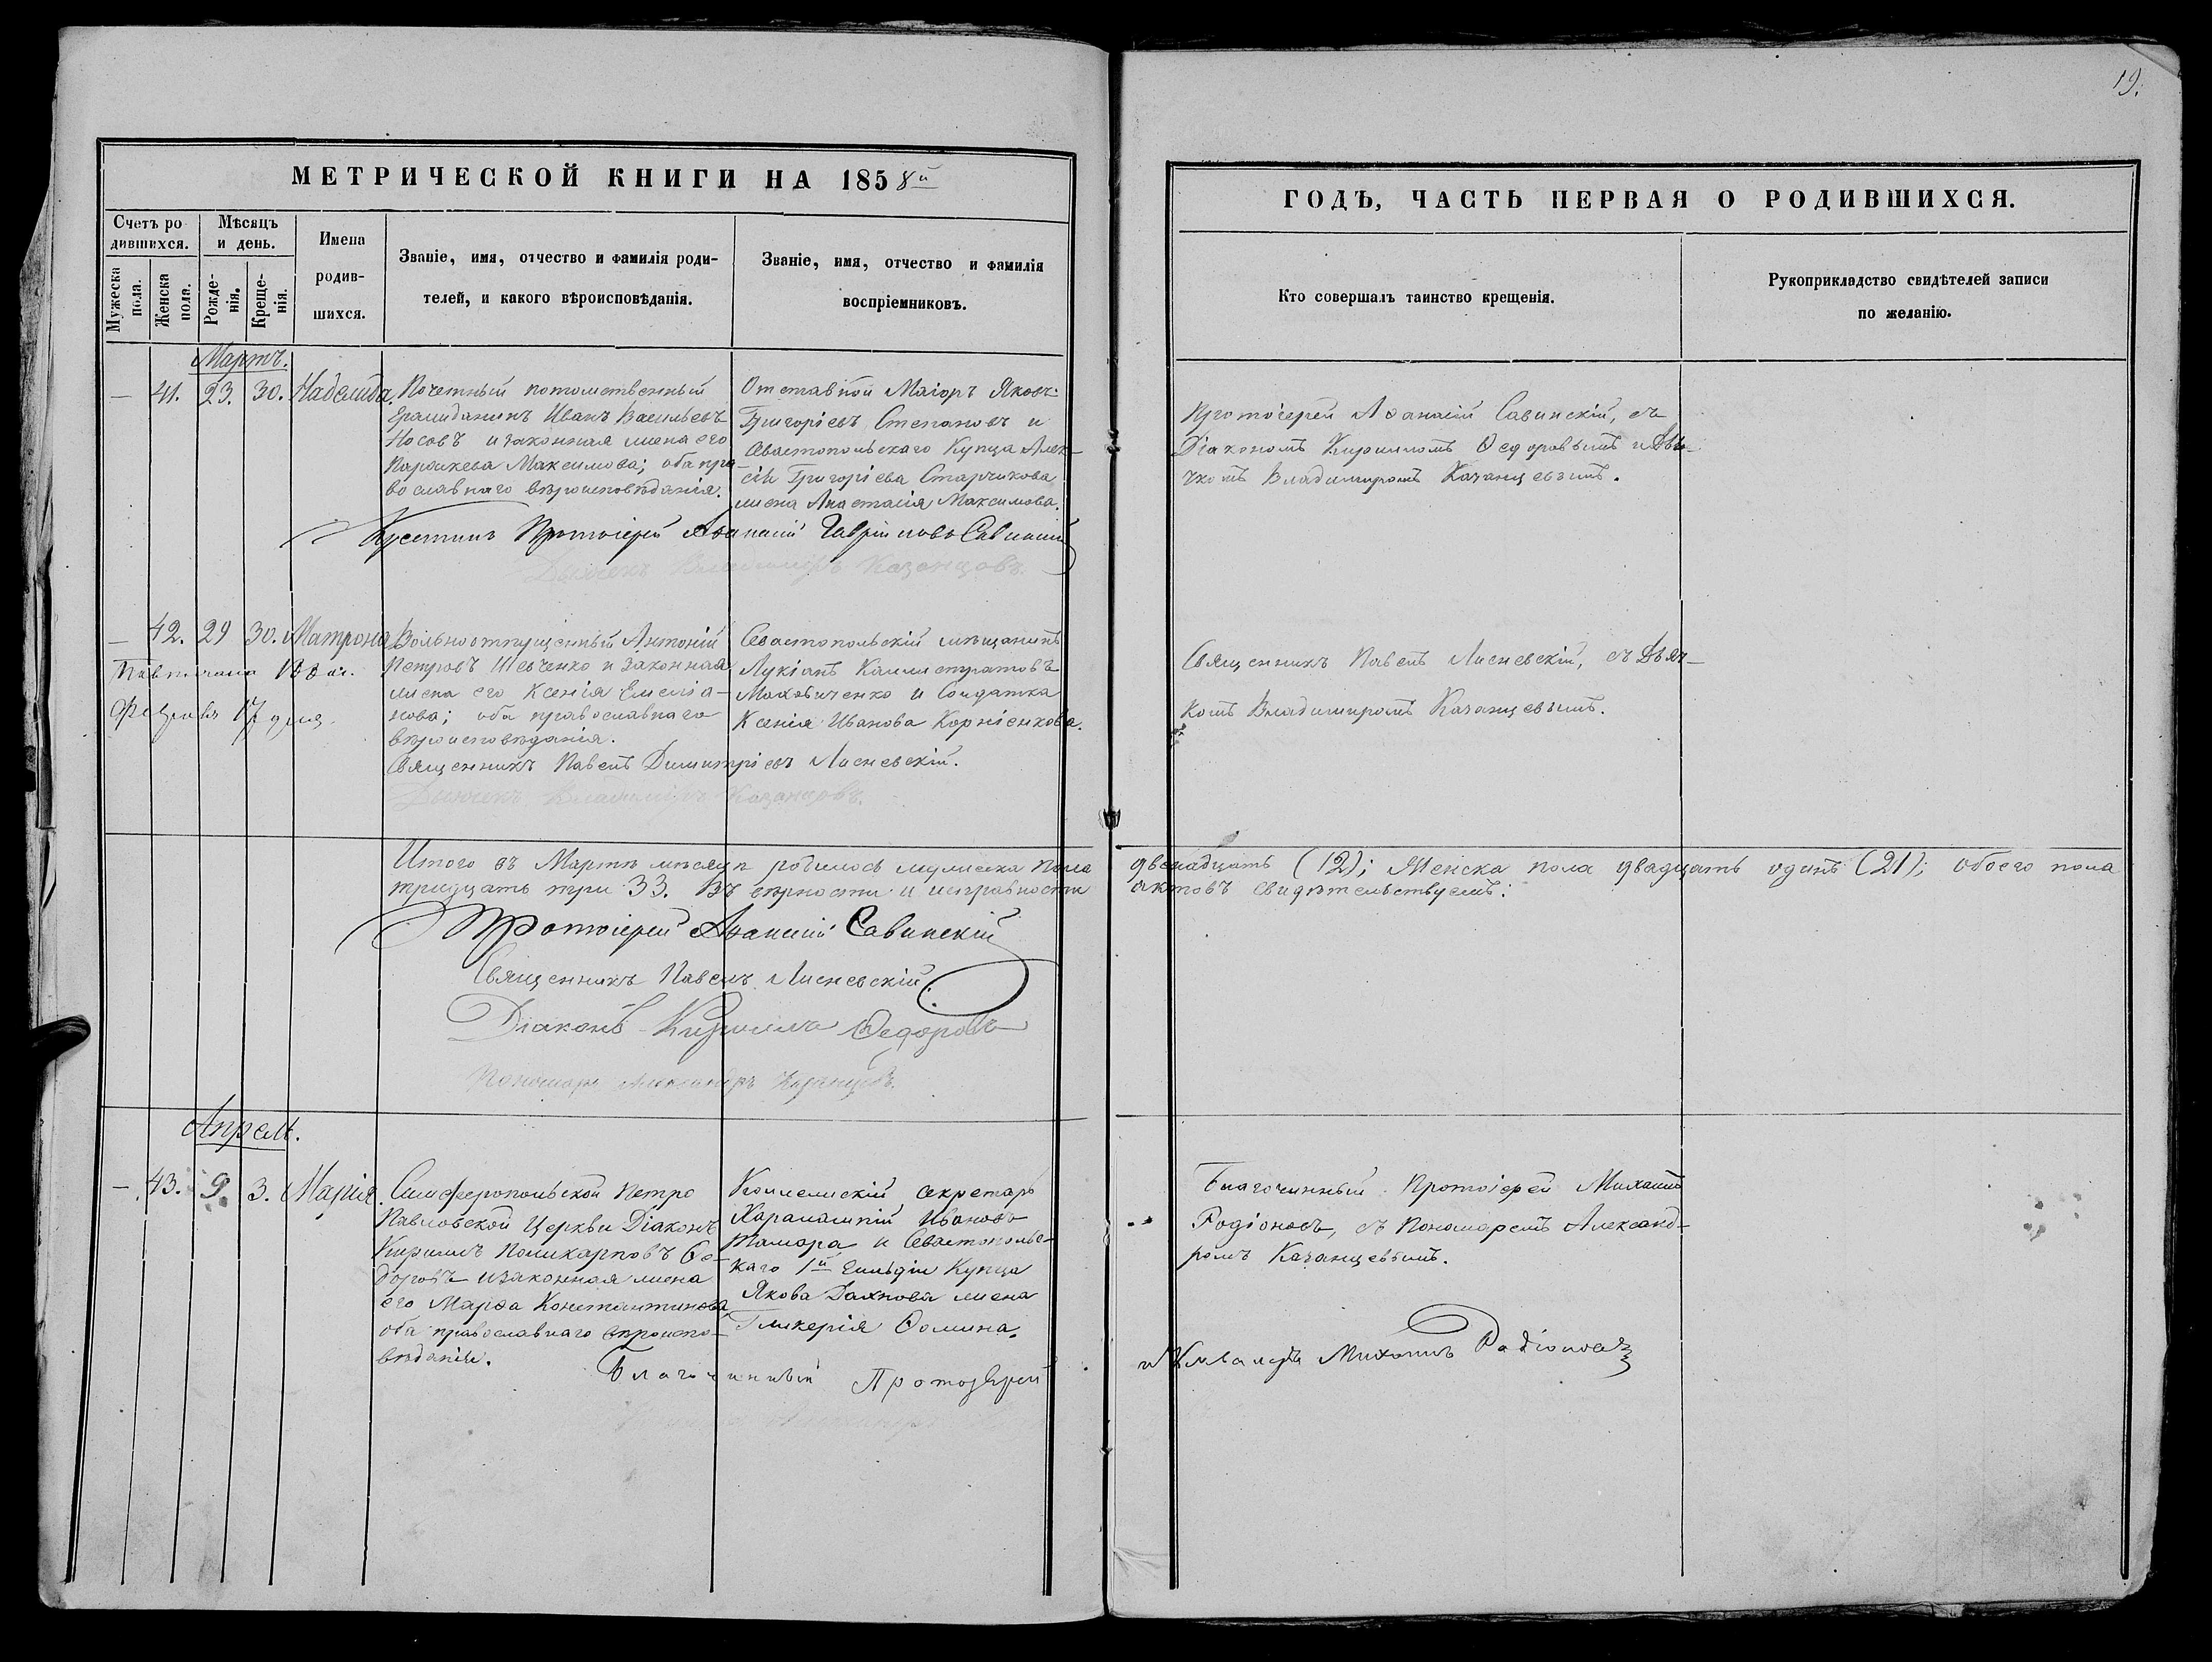 19.
МЕТРИЧЕСКОЙ КНИГИ НА 1858й
ГОДЪ, ЧАСТЬ ПЕРВАЯ О РОДИВШИХСЯ.
Счетъ ро
дившихся.
Мужеска пола.
Женска пола.
Мѣсяцъ
и день.
Рожде-
нія.
Креще-
нія.
Имена
родив-
шихся.
Званіе, имя, отчество и фамилія роди-
телей, и какого вѣроисповѣданія.
Званіе, имя, отчество и фамилія
воспріемниковъ.
Кто совершалъ таинство крещенія.
Рукоприкладство свидѣтелей записи
по желанію.
Мартъ.
— 41. 23. 30. Надежда.
Почетный потомственный
Гражданинъ Иванъ Васильевъ
Носовъ и законная жена его
Параскева Максимова; оба пра-
вославнаго вѣроисповѣданія.
Отставной Маіоръ Яковъ
Григоріевъ Степановъ и
Севастопольскаго Купца Алек-
сѣя Григоріева Старчикова
жена Анастасія Максимова.
Протоіерей Аѳанасій Савинскій, съ
Діакономъ Кирилломъ Ѳедоровымъ и Дья-
чкомъ Владимиромъ Казанцевымъ.
Крестилъ Протоіерей Аѳанасій Гавріиловъ Савинскій
Дьячекъ Владиміръ Казанцовъ.
— 42. 29 30. Матрона
Февраля 17 дня.
Вольноотпущенный Антоній
Петровъ Шевченко и законная
жена его Ксенія Емеліа-
нова; оба православнаго
вѣроисповѣданія.
Севастопольскій мѣщанинъ
Лукіанъ Каллистратовъ
Маховиченко и Солдатка
Ксенія Иванова Корніенкова.
Священникъ Павелъ Лисневскій, съ Дьяч-
комъ Владимиромъ Казанцевымъ.
Священникъ Павелъ Димитріевъ Лисневскій.
Дьячекъ Владиміръ Казанцовъ.
Итого въ Мартѣ мѣсяцѣ родилось мужеска пола двенадцать (12); Женска пола двадцать одинъ (21); обоего пола
тридцать три 33. Въ вѣрности и исправности актовъ свидѣтельствуемъ:
Протоіерей Аѳанасій Савинскій
Священникъ Павелъ Лисневскій.
Діаконъ Кириллъ Ѳедоровъ
Пономарь Александръ Казанцевъ.
Апрель.
— 43. 9. 3. Марія.
Симферопольской Петро
Павловской Церкви Діаконъ
Кириллъ Поликарповъ Ѳе-
доровъ и законная жена
его Марѳа Константинова,
оба православнаго вѣроиспо-
вѣданія.
Коллежскій секретарь
Харалампій Ивановъ
Тамара и Севастопольс-
каго 1й Гильдіи Купца
Якова Дахнова жена
Гликерія Ѳомина.
Благочинный Протоіерей Михаилъ
Родіоновъ, съ Пономаремъ Александ-
ромъ Казанцевымъ.
Благочинный Протоіерей
и Кавалеръ Михаилъ Родіоновъ